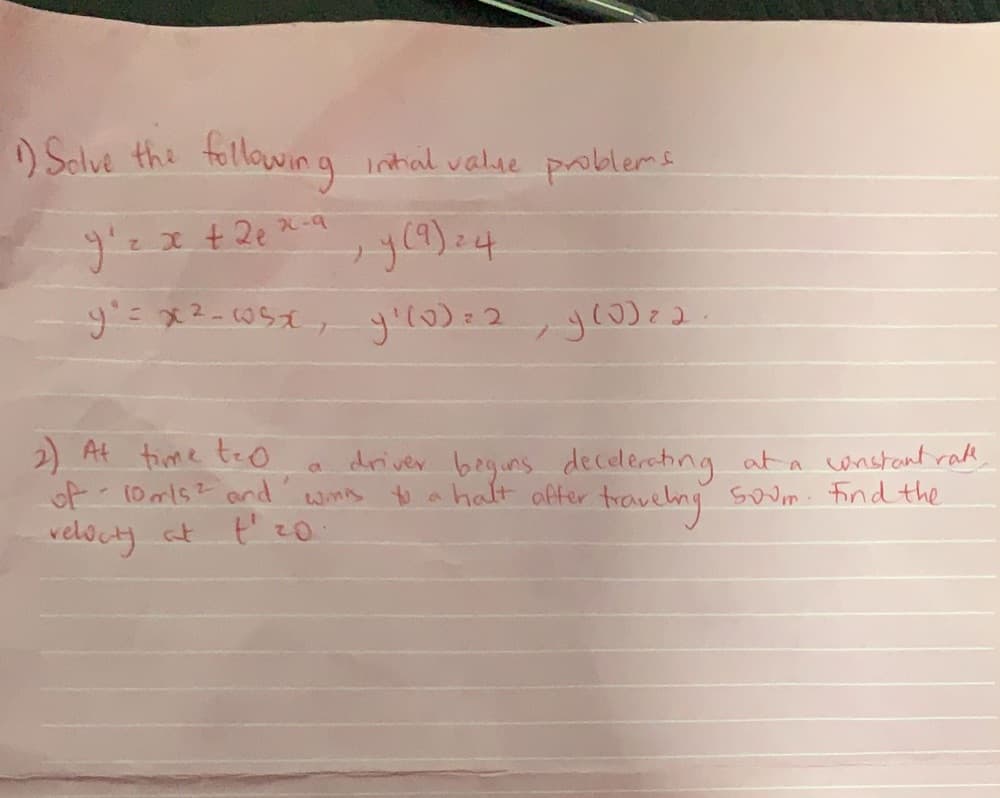 1) Solve the following initial value problems
y' = x + 2e^x-9 , y(9) = 4
y" = x^2 - cosx, y'(0) = 2 , y(0) = 2.
2) At time t=0, a driver begins decelerating at a constant rate
of - 10 m/s^2 and comes to a halt after traveling 500m. Find the
velocity at t' = 0.